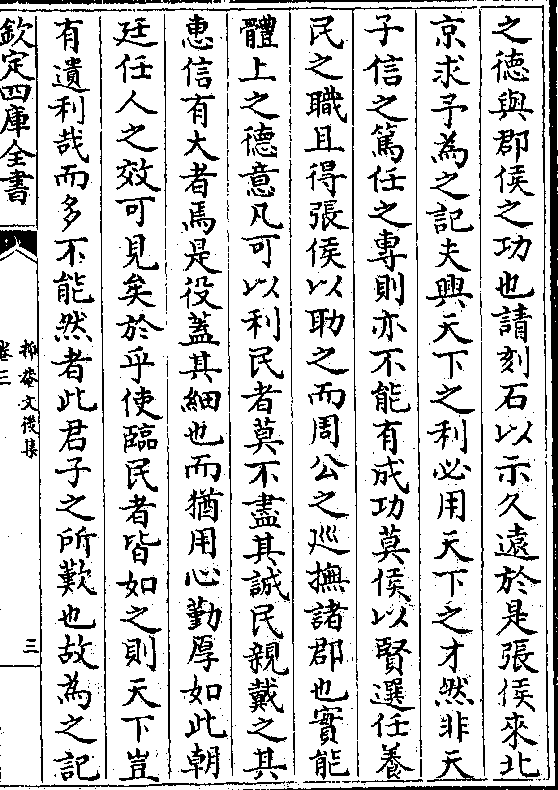 之德與郡侯之功也請刻石以示久遠於是張侯來北
京求予為之記夫興天下之利必用天下之才然非天
子信之篤任之專則亦不能有成功莫侯以賢選任養
民之職且得張侯以助之而周公之巡撫諸郡也實能
體上之德意凡可以利民者莫不盡其誠民親戴之其
惠信有大者焉是役蓋其細也而猶用心勤厚如此朝
廷任人之效可見矣於乎使臨民者皆如之則天下豈
有遺利哉而多不能然者此君子之所歎也故為之記
欽定四庫全書
抑菴文後集
卷三
三